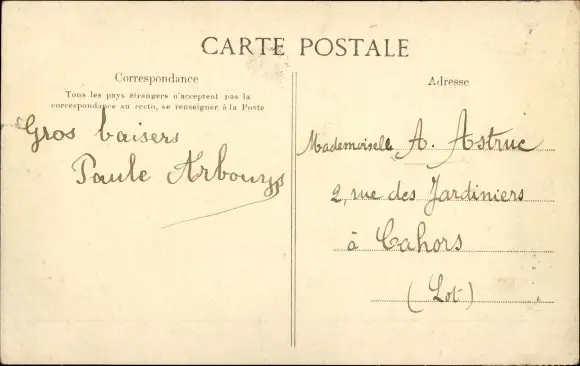 CARTE POSTALE
Correspondance
Tous les pays étrangers n'acceptent pas la
correspondance au recto, se renseigner à la Poste
Gros baisers
Paule Arbouys
Adresse
Mademoiselle A. Astruc
2, rue des Jardiniers
à Cahors
(Lot)